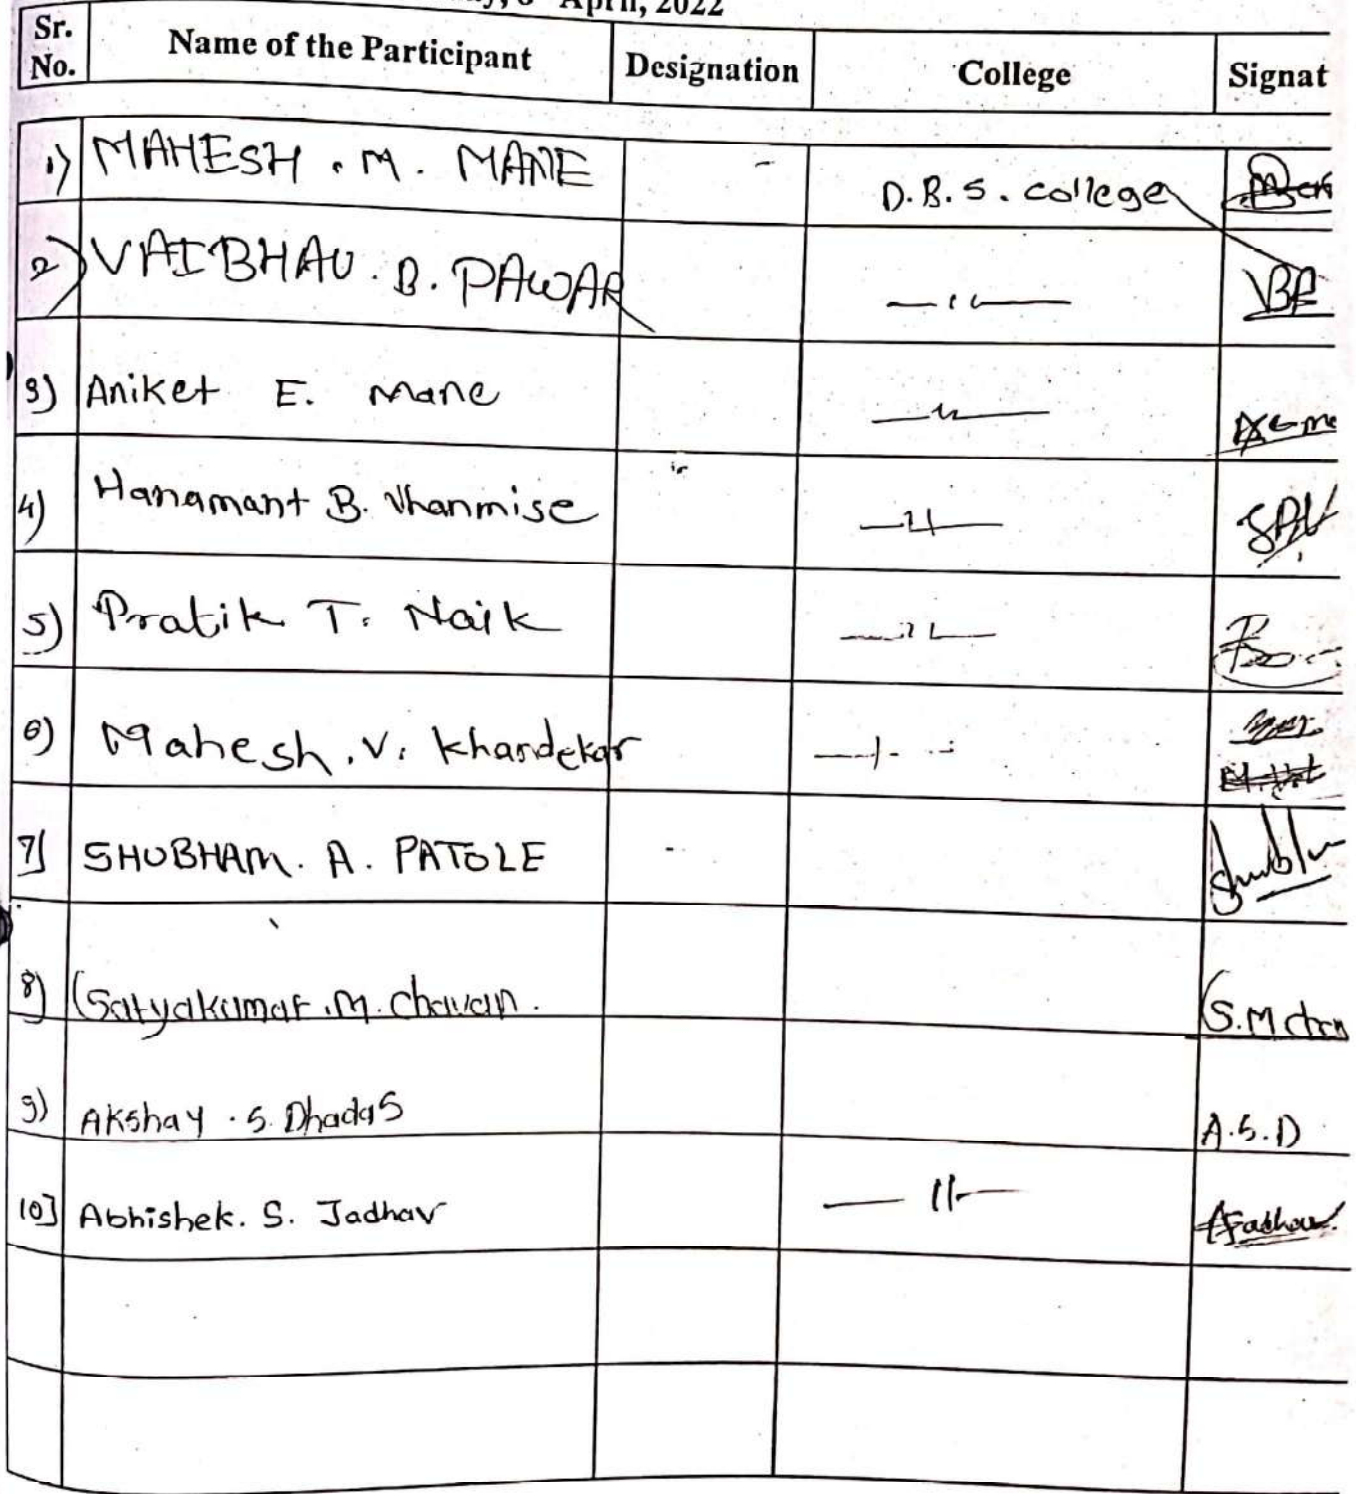 April, 2022
Sr. No. Name of the Participant Designation College Signat
1) MAHESH . M. MANE - D.B.S. college
2) VAIBHAV. B. PAWAR —〃— VBP
3) Aniket E. Mane —〃—
4) Hanamant B. Vhanmise —〃—
5) Pratik T. Naik —〃—
6) Mahesh . V. Khandekar
7] SHUBHAM. A. PATOLE -
8) Satyakumar .M. Chavan. S.M
9) Akshay . S. Dhadas A.S.D
10] Abhishek. S. Jadhav —〃— AJadhav